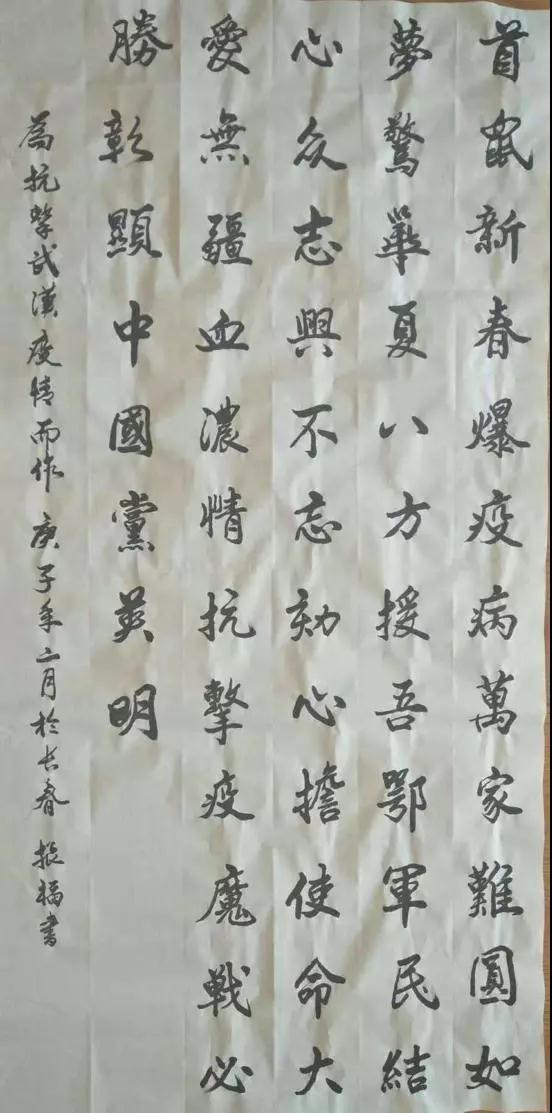 首鼠新春爆疫病萬家難圓如
夢驚華夏八方援吾鄂軍民結
心众志興不忘初心擔使命大
愛無疆血濃情抗擊疫魔戰必
勝彰顯中國黨英明
為抗擊武漢疫情而作 庚子年二月於长春 振福書